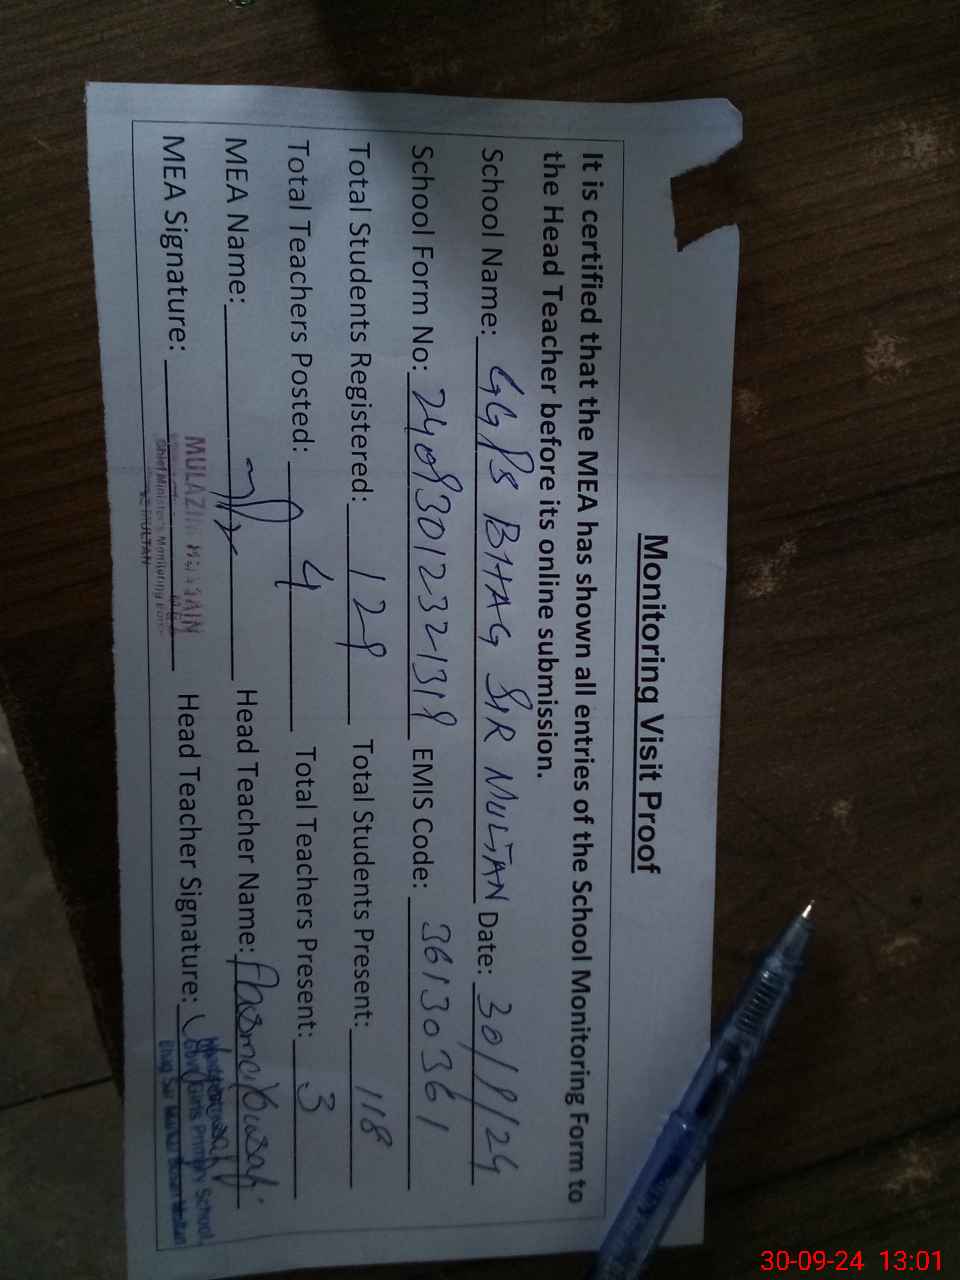 Monitoring Visit Proof
It is certified that the MEA has shown all entries of the School Monitoring Form to
the Head Teacher before its online submission.
School Name: GGPS BHAG SIR MULTAN Date: 30/9/24
School Form No: 24093012321319 EMIS Code: 36130361
Total Students Registered: 129 Total Students Present: 118
Total Teachers Posted: 4 Total Teachers Present: 3
MEA Name: Head Teacher Name:
MEA Signature: Head Teacher Signature:
MULAZIM HUSSAIN
Chief Minister's Monitoring Force
MULTAN
Govt. Girls Primary School
30-09-24 13:01